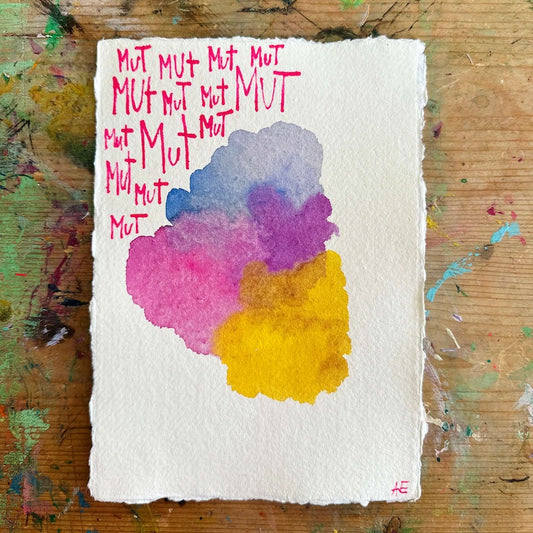 MuT MUt Mut MuT
MUt MuT Mut MUT
Mut Mut MuT
Mut MuT
MuT
AE